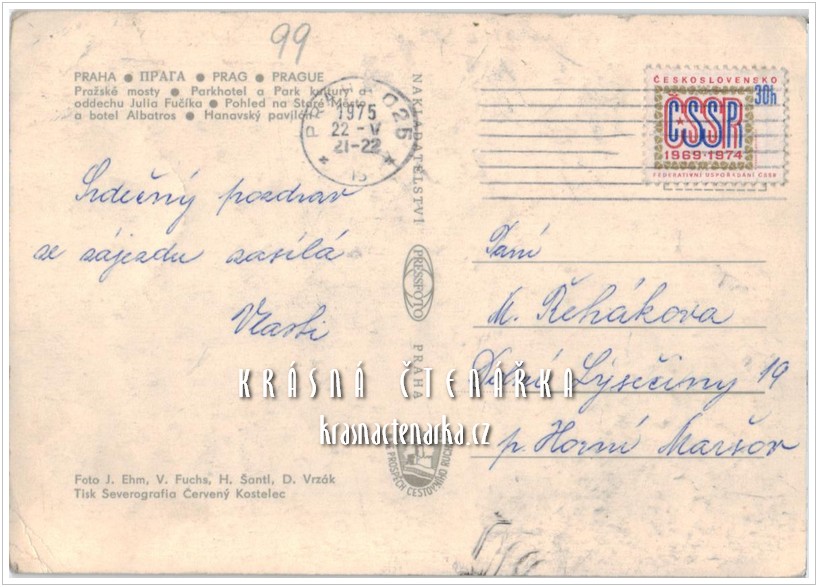 99
PRAHA ● ПРАГА ● PRAG ● PRAGUE
Pražské mosty ● Parkhotel a Park kultury a
oddechu Julia Fučíka ● Pohled na Staré Město
a botel Albatros ● Hanavský pavilón
Srdečný pozdrav
ze zájezdu zasílá
Vlasti
Foto J. Ehm, V. Fuchs, H. Šantl, D. Vrzák
Tisk Severografia Červený Kostelec
NAKLADATELSTVÍ
PRESSFOTO
PRAHA
PROSPĚCH CESTOVNÍHO
025
1975
22 -V
21-22
ČESKOSLOVENSKO
30h
ČSSR
1969·1974
FEDERATIVNÍ USPOŘÁDÁNÍ ČSSR
Paní
M. Řehákova
Dolní Lysečiny 19
p. Horní Maršov
KRÁSNÁ ČTENÁŘKA
krasnactenarka.cz